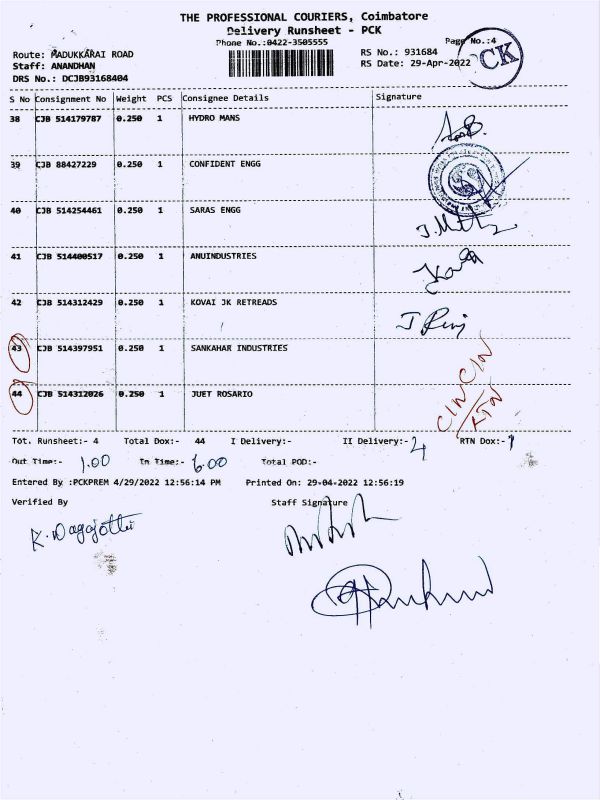 THE PROFESSIONAL COURIERS, Coimbatore
Delivery Runsheet - PCK
Phone No.:0422-3505555
Page No.:4
CK
Route: MADUKKARAI ROAD
RS No.: 931684
Staff: ANANDHAN
RS Date: 29-Apr-2022
DRS No.: DCJB93168404
S No Consignment No Weight PCS Consignee Details Signature
38 CJB 514179787 0.250 1 HYDRO MANS
39 CJB 88427229 0.250 1 CONFIDENT ENGG
40 CJB 514254461 0.250 1 SARAS ENGG
41 CJB 514400517 0.250 1 ANUINDUSTRIES
42 CJB 514312429 0.250 1 KOVAI JK RETREADS
43 CJB 514397951 0.250 1 SANKAHAR INDUSTRIES
44 CJB 514312026 0.250 1 JUET ROSARIO
RTN
Tot. Runsheet:- 4 Total Dox:- 44 I Delivery:- II Delivery:- RTN Dox:-
Out Time:- 1.00 In Time:- 6.00 Total POD:-
Entered By :PCKPREM 4/29/2022 12:56:14 PM Printed On: 29-04-2022 12:56:19
Verified By Staff Signature